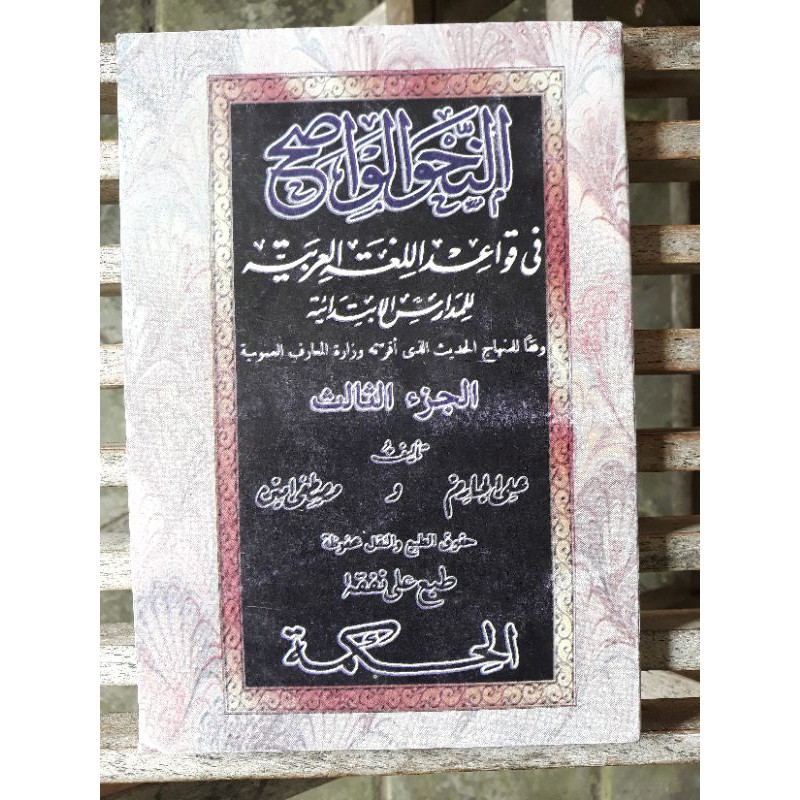 النحو الواضح
فى قواعد اللغة العربية
للمدارس الابتدائية
وفقا للمنهاج الحديث الذى أقرته وزارة المعارف العمومية
الجزء الثالث
تأليف
على الجارم و مصطفى امين
حقوق الطبع والنقل محفوظة
طبع على نفقة
الحكمة